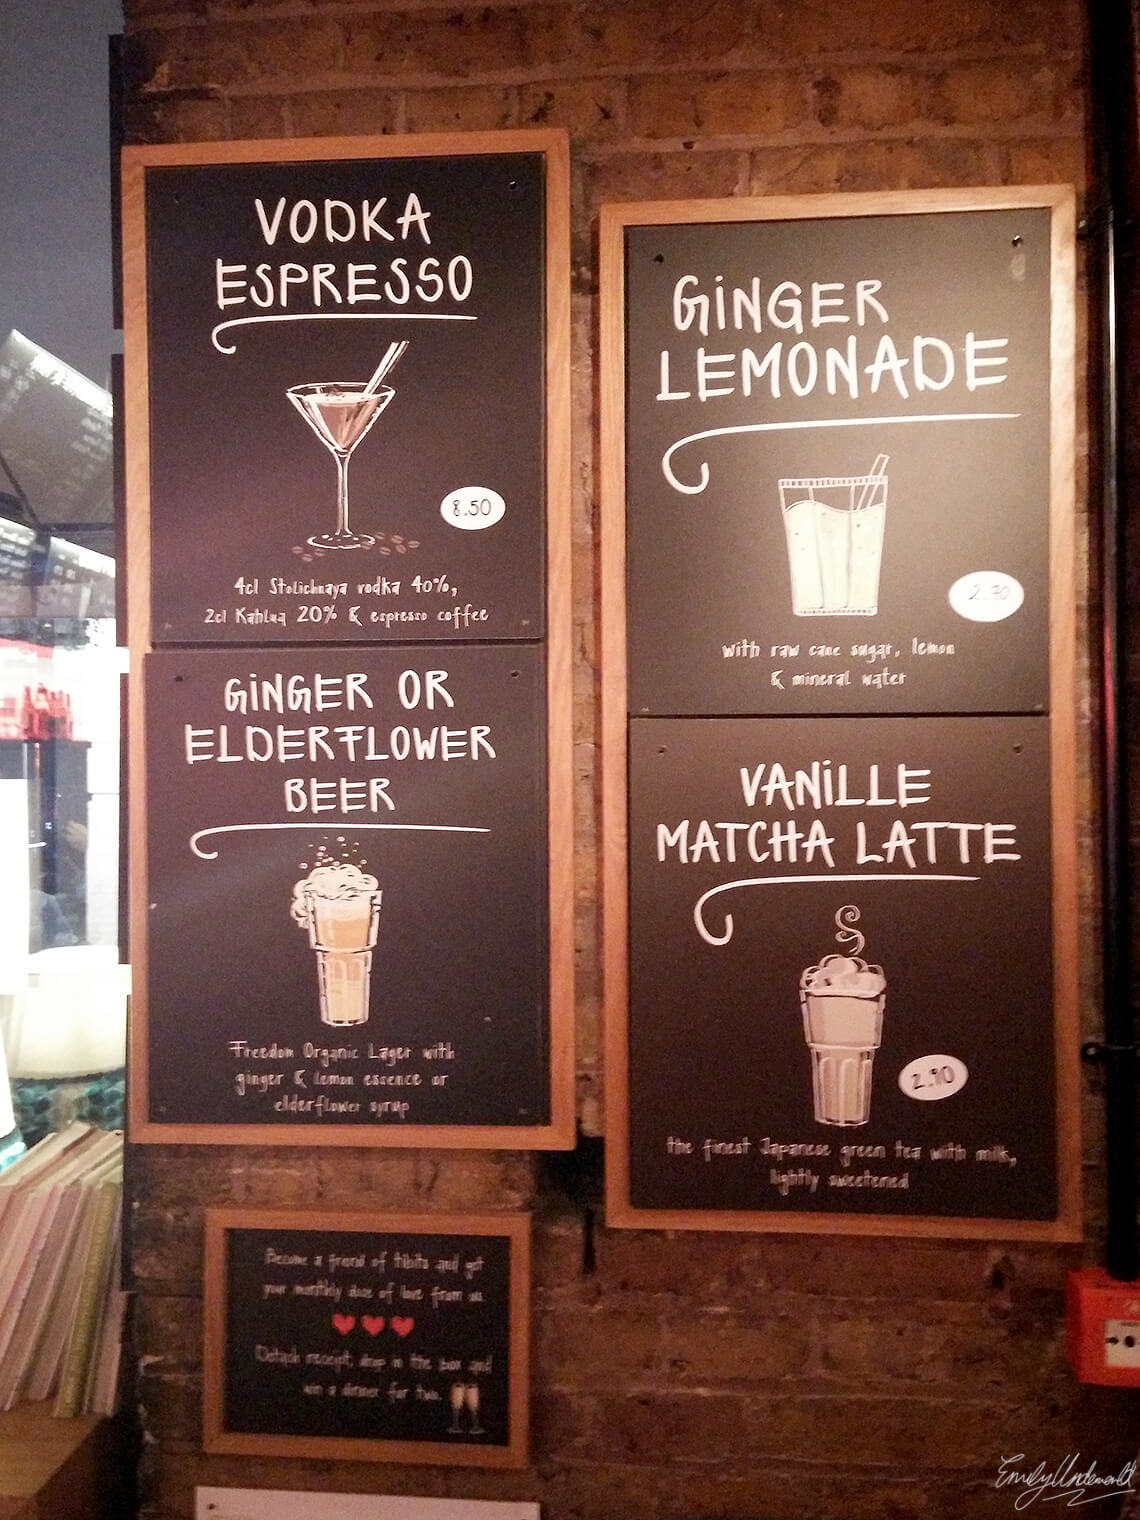 VODKA
ESPRESSO
8.50
4cl Stolichnaya vodka 40%,
2cl Kahlua 20% & espresso coffee
GiNGER OR
ELDERFLOWER
BEER
Freedom Organic Lager with
ginger & lemon essence or
elderflower syrup
GiNGER
LEMONADE
2.70
with raw cane sugar, lemon
& mineral water
VANiLLE
MATCHA LATTE
2.90
the finest Japanese green tea with milk,
lightly sweetened
Become a friend of tibits and get
your monthly dose of love from us.
Detach receipt, drop in the box and
win a dinner for two.
Emily Underworld